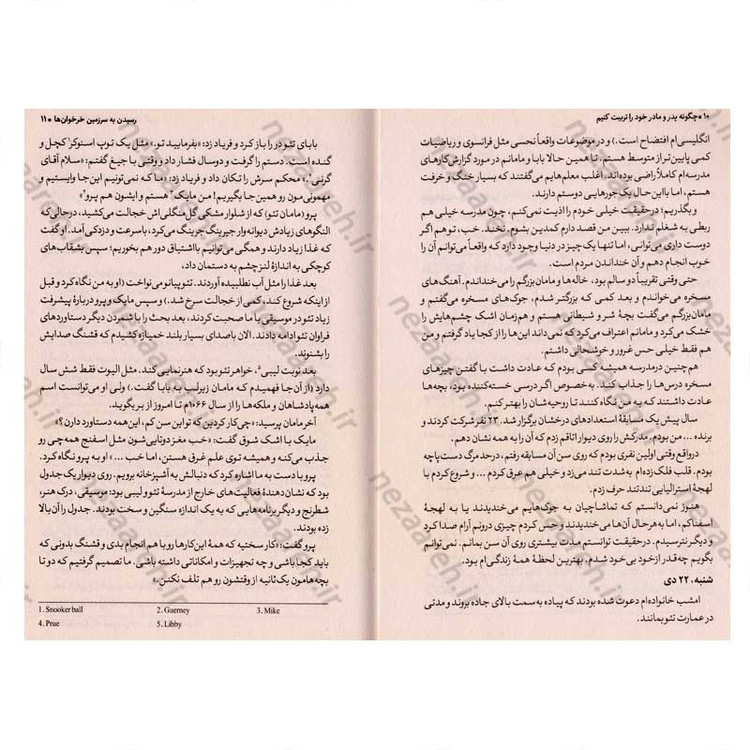 ۱۰ • چگونه پدر و مادر خود را تربیت کنیم
انگلیسی‌ام افتضاح است.) و در موضوعات واقعاً نحسی مثل فرانسوی و ریاضیات
کمی پایین‌تر از متوسط هستم. تا همین حالا بابا و مامانم در مورد گزارش‌کارهای
مدرسه‌ام کاملاً راضی بوده‌اند. اغلب معلم‌هایم می‌گفتند که بسیار خنگ و خرفت
هستم، اما با این حال یک جورهایی دوستم دارند.
و بگذریم؛ درحقیقت خیلی خودم را اذیت نمی‌کنم، چون مدرسه خیلی هم
ربطی به شغلم ندارد. ببین من قصد دارم کمدین بشوم. نخند. خب، تو هم اگر
دوست داری می‌توانی. اما، تنها یک چیز در دنیا وجود دارد که واقعاً می‌توانم آن را
خوب انجام دهم و آن خنداندن مردم است.
حتی وقتی تقریباً دو سالم بود، خاله‌ها و مامان‌بزرگم را می‌خنداندم. آهنگ‌های
مسخره می‌خواندم و بعد کمی که بزرگتر شدم، جوک‌های مسخره می‌گفتم و
مامان‌بزرگم می‌گفت بچهٔ شر و شیطانی هستم و هم‌زمان اشک چشم‌هایش را
خشک می‌کرد و مامانم اعتراف می‌کرد که نمی‌داند این‌ها را از کجا یاد گرفتم و من
هم فقط خیلی حس غرور و خوشحالی داشتم.
هم‌چنین درمدرسه همیشه کسی بودم که عادت داشت با گفتن چیزهای
مسخره درس‌ها را جذاب کند. به‌خصوص اگر درسی خسته‌کننده بود، بچه‌ها
عادت داشتند که به من نگاه کنند تا روحیه‌شان را بهتر کنم.
سال پیش یک مسابقهٔ استعدادهای درخشان برگزار شد. ۲۳ نفر شرکت کردند و
برنده ... من بودم. مدرکش را روی دیوار اتاقم زدم که آن را به همه نشان دهم.
درواقع وقتی اولین نفری بودم که روی سن آن مسابقه رفتم، درحد مرگ دست‌پاچه
بودم. قلب فلک‌زده‌ام به‌شدت تند می‌زد و خیلی هم عرق کردم ... و شروع کردم با
لهجهٔ استرالیایی تندتند حرف زدم.
هنوز نمی‌دانستم که تماشاچیان به جوک‌هایم می‌خندیدند یا به لهجهٔ
اسفناکم، اما به‌هرحال آن‌ها می‌خندیدند و حس کردم چیزی درونم آرام صدا کرد
و دیگر نترسیدم. درحقیقت توانستم مدت بیشتری روی آن سن بمانم. نمی‌توانم
بگویم چه‌قدر ازخود بی‌خود شدم. بهترین لحظهٔ همهٔ زندگی‌ام بود.
شنبه، ۲۲ دی
امشب خانواده‌ام دعوت شده بودند که پیاده به سمت بالای جاده بروند و مدتی
در عمارت تئو بمانند.
رسیدن به سرزمین خرخوان‌ها • ۱۱
بابای تئو در را باز کرد و فریاد زد: «بفرمایید تو.» مثل یک توپ اسنوکر۱ کچل و
گنده است. دستم را گرفت و دوسال فشار داد و وقتی با جیغ گفتم: «سلام آقای
گرنی۲»، محکم سرش را تکان داد و فریاد زد: «ما که نمی‌تونیم این‌جا وایستیم و
مهمونی‌مون رو همین‌جا بگیریم! من مایک۳ هستم و ایشون هم پرو۴.»
پرو (مامان تئو) که از شلوار مشکی گل منگلی‌اش خجالت می‌کشید، درحالی‌که
النگوهای زیادش دیوانه‌وار جیرینگ جرینگ می‌کرد، باسرعت و دزدکی آمد. او گفت
که غذا زیاد دارند و همگی می‌توانیم بااشتیاق دور هم بخوریم؛ سپس بشقاب‌های
کوچکی به اندازهٔ لنز چشم به دستمان داد.
بعد غذا را مثل آب نطلبیده آوردند. تئو پیانو می‌نواخت (او به من نگاه کرد و قبل
از اینکه شروع کند، کمی از خجالت سرخ شد.) و سپس مایک و پرو دربارهٔ پیشرفت
زیاد تئو در موسیقی با ما صحبت کردند، بعد بحث را با شمردن دیگر دستاوردهای
فراوان تئو ادامه دادند. الان باصدای بسیار بلند خمیازه کشیدم که قشنگ صدایش
را بشنوند.
بعد نوبت لیبی۵، خواهر تئو بود که هنرنمایی کند. مثل الیوت فقط شش سال
دارد (از آن‌جا فهمیدم که مامان زیرلب به بابا گفت.) ولی او می‌توانست اسم
همه پادشاهان و ملکه‌ها را از سال ۱۰۶۶م تا امروز از بر بگوید.
آخر مامان پرسید: «چی‌کار کردین که تو این سن کم، این‌همه دستاورد دارن؟»
مایک با اشک شوق گفت: «خب مغز دوتایی‌شون مثل اسفنج همه‌چی رو
جذب می‌کنه و همیشه توی علم غرق هستن، اما خب ...» او به پرو نگاه کرد.
پرو با دست به ما اشاره کرد که دنبالش به آشپزخانه برویم. روی دیوار یک جدول
بود که نشان‌دهندهٔ فعالیت‌های خارج از مدرسهٔ تئو و لیبی بود: موسیقی، درک هنر،
شطرنج و دیگر برنامه‌هایی که به یک اندازه سنگین و سخت بودند. جدول را آن بالا
زده بودند.
پرو گفت: «کار سختیه که همهٔ این‌کارها رو با هم انجام بدی و قشنگ بدونی که
باید کجا باشی و چه تجهیزات و امکاناتی داشته باشی. ما تصمیم گرفتیم که دو تا
بچه‌هامون یک ثانیه از وقتشون رو هم تلف نکنن.»
1. Snooker ball 2. Guerney 3. Mike
4. Prue 5. Libby
nezaareh.ir